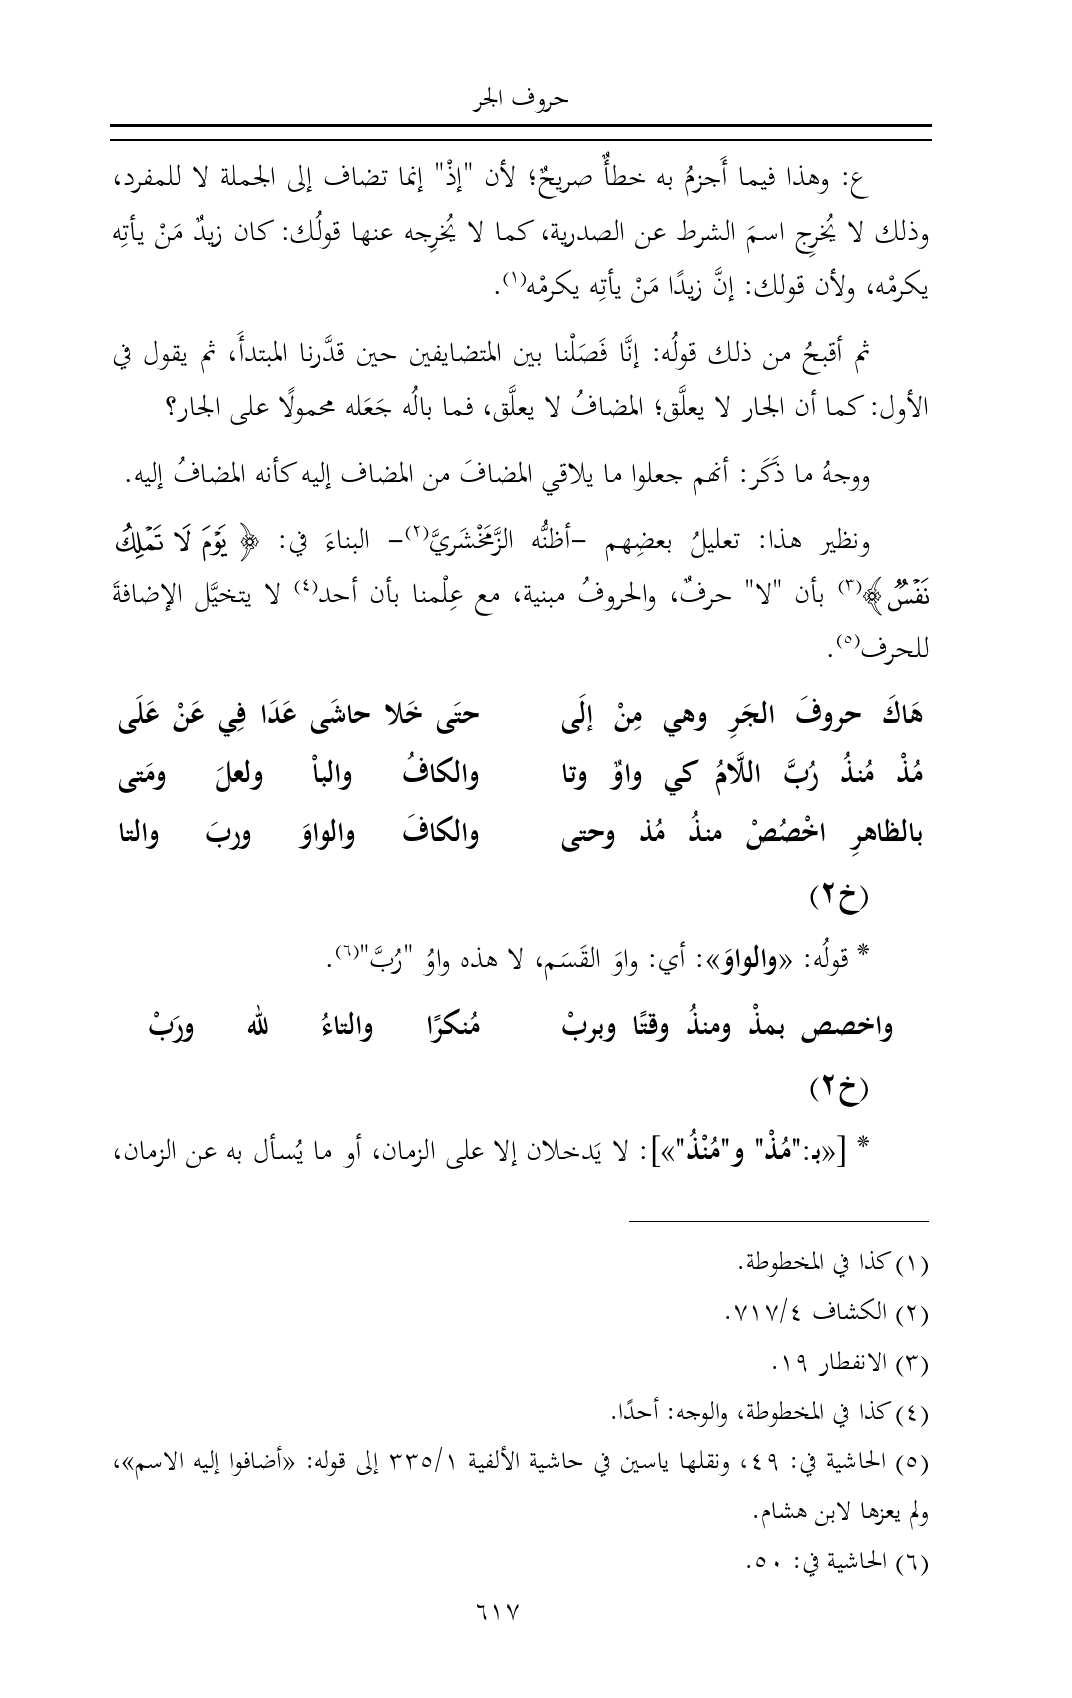 حروف الجر
ع: وهذا فيما أَجزمُ به خطأٌ صريحٌ؛ لأن "إذْ" إنما تضاف إلى الجملة لا للمفرد،
وذلك لا يُخرِج اسمَ الشرط عن الصدرية، كما لا يُخرِجه عنها قولُك: كان زيدٌ مَنْ يأتِه
يكرمْه، ولأن قولك: إنَّ زيدًا مَنْ يأتِه يكرمْه(١).
ثم أقبحُ من ذلك قولُه: إنَّا فَصَلْنا بين المتضايفين حين قدَّرنا المبتدأَ، ثم يقول في
الأول: كما أن الجار لا يعلَّق؛ المضافُ لا يعلَّق، فما بالُه جَعَله محمولًا على الجار؟
ووجهُ ما ذَكَر: أنهم جعلوا ما يلاقي المضافَ من المضاف إليه كأنه المضافُ إليه.
ونظير هذا: تعليلُ بعضِهم -أظنُّه الزَّمَخْشَريَّ(٢)- البناءَ في: ﴿يَوْمَ لَا تَمْلِكُ
نَفْسٌ﴾(٣) بأن "لا" حرفٌ، والحروفُ مبنية، مع عِلْمنا بأن أحد(٤) لا يتخيَّل الإضافةَ
للحرف(٥).
هَاكَ حروفَ الجَرِ وهي مِنْ إلَى حتَى خَلا حاشَى عَدَا فِي عَنْ عَلَى
مُذْ مُنذُ رُبَّ اللَّامُ كي واوٌ وتا والكافُ والباْ ولعلَ ومَتى
بالظاهرِ اخْصُصْ منذُ مُذ وحتى والكافَ والواوَ وربَ والتا
(خ٢)
* قولُه: «والواوَ»: أي: واوَ القَسَم، لا هذه واوُ "رُبَّ"(٦).
واخصص بمذْ ومنذُ وقتًا وبربْ مُنكرًا والتاءُ لله ورَبْ
(خ٢)
* [«بـ:"مُذْ" و"مُنْذُ"»]: لا يَدخلان إلا على الزمان، أو ما يُسأل به عن الزمان،
(١) كذا في المخطوطة.
(٢) الكشاف ٧١٧/٤.
(٣) الانفطار ١٩.
(٤) كذا في المخطوطة، والوجه: أحدًا.
(٥) الحاشية في: ٤٩، ونقلها ياسين في حاشية الألفية ٣٣٥/١ إلى قوله: «أضافوا إليه الاسم»،
ولم يعزها لابن هشام.
(٦) الحاشية في: ٥٠.
٦١٧